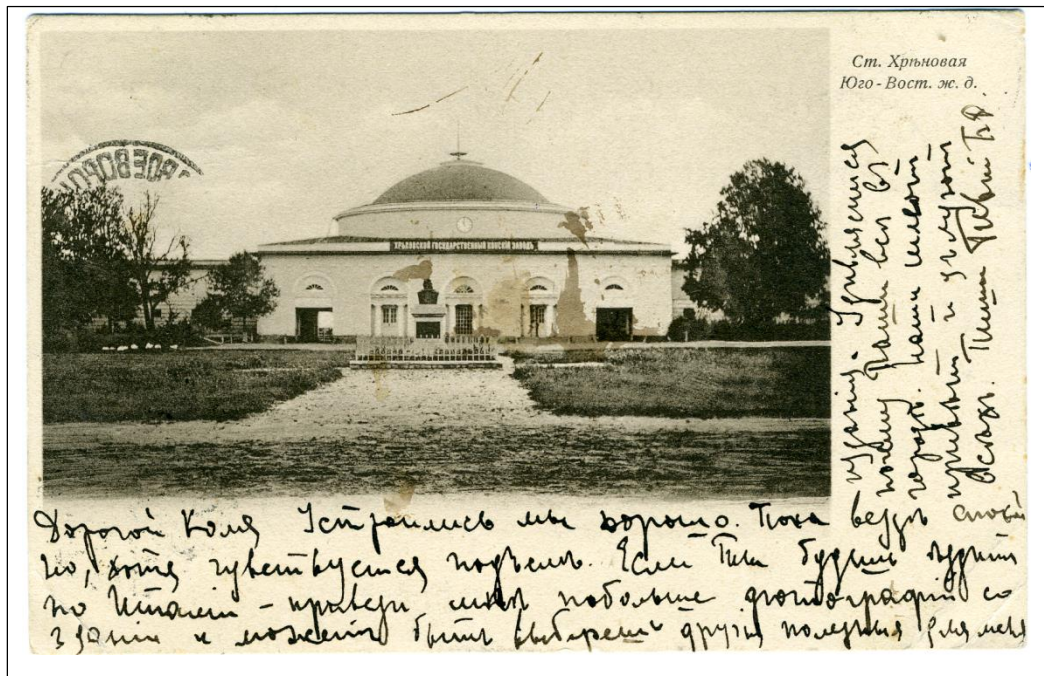 Ст. Хрѣновая
Юго-Вост. ж. д.
ХРѢНОВСКОЙ ГОСУДАРСТВЕННЫЙ КОНСКІЙ ЗАВОДЪ
Дорогой Коля Устроились мы хорошо. Пока вездѣ спокой
но, хотя чувствуется подъемъ. Если Ты будешь ѣздить
по Италіи - привези мнѣ побольше фотографій со
зданій и можетъ быть выберешь другія полезныя для меня
изданія. Удивляемся
почему
городѣ. Наши шлютъ
привѣтъ и цѣлуютъ
всѣхъ. Пиши Твой